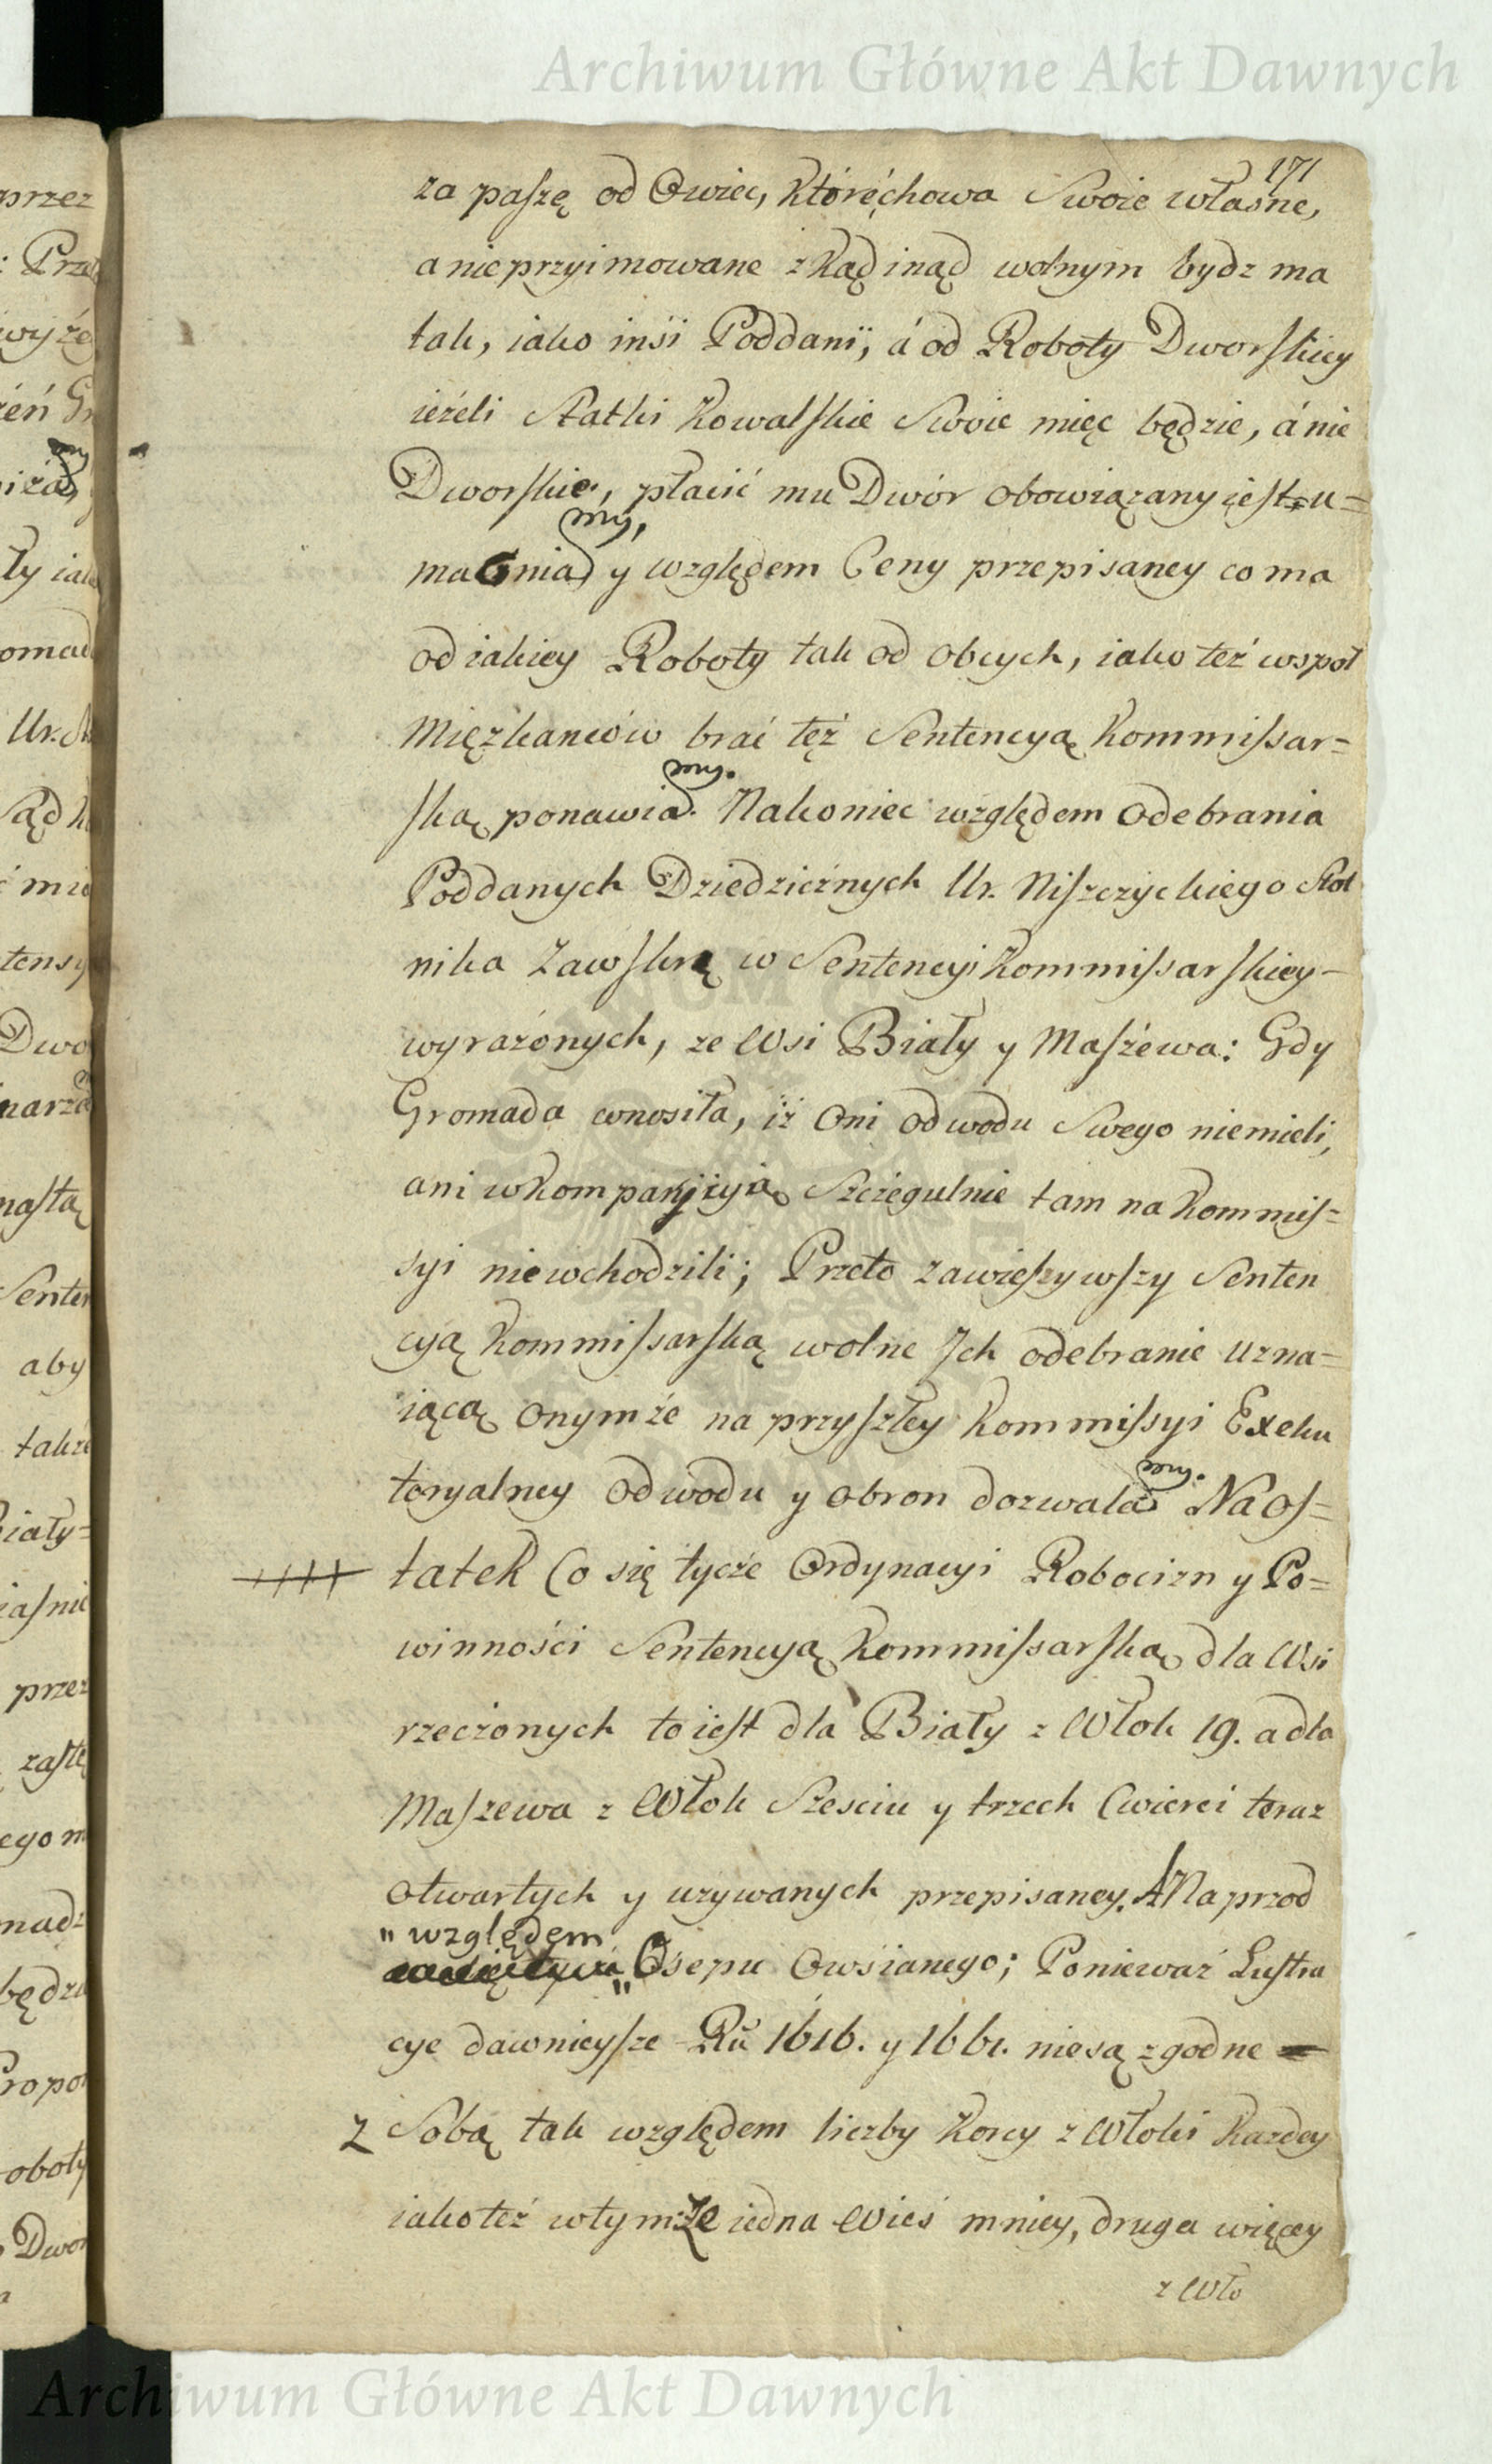 Archiwum Główne Akt Dawnych
171
za paszę od Owiec, które chowa Swoie własne,
a nieprzyimowane zkąd inąd wolnym bydz ma
tak, iako insi Poddani, á od Roboty Dworskiey
ieżeli Statki Kowalskie Swoie mięc będzie, á nie
Dworskie, płacić mu Dwór obowiązany iest u=
my,
macnia y względem Ceny przepisaney co ma
od iakiey Roboty tak od obcych, iako też wspoł
Mięzkańców brać też Sentencyą Kommissar=
my.
ską ponawia. Nakoniec względem odebrania
Poddanych Dziedzicżnych Ur. Niszczyckiego Stol
nika Zawskrą w Sentencyi Kommissarskiey
wyrażonych, ze Wsi Biały y Maszéwa: Gdy
Gromada wnosiła, iż Oni odwodu Swego niemieli,
ani w Szczegulnie tam na Kommis=
syi niewchodzili; Przeto zawieszywszy Senten
cyą Kommissarską wolne Ich odebranie uzna=
iącą onymże na przyszłey Kommissyi Exeku
my.
toryalney odwodu y obron dozwala Na os=
tatek Co się tycże Ordynacyi Robocizn y Po=
winności Sentencyą Kommissarską dla Wsi
rzeczonych to iest dla Biały z Włok 19. a dla
Maszewa z Włok Szesciu y trzech Cwierci teraz
otwartych y uzywanych przepisaney. Naprzod
" względem
" Osepu Owsianego; Ponieważ Lustra
cye dawnieysze Ru 1616. y 1661. niesą zgodne
z Sobą tak względem liczby Korcy z Włoki Kazdey
iako też w tym że iedna Wieś mniey, druga więcey
z Wło
Archiwum Główne Akt Dawnych